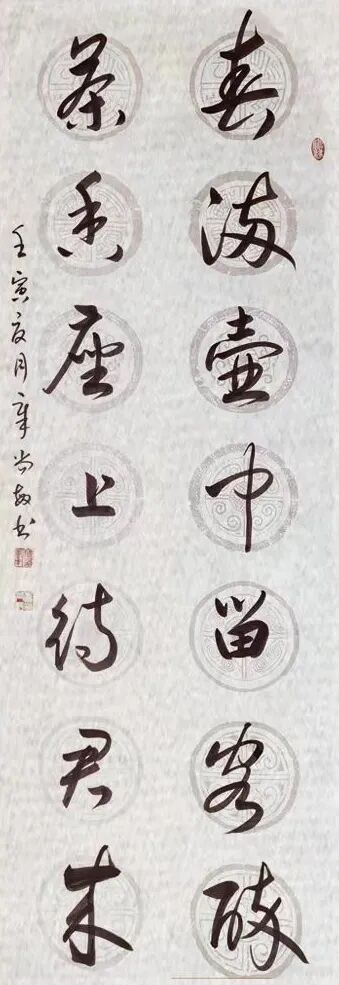 春满壶中留客醉
茶香座上待君来
壬寅夏月章尚敏书